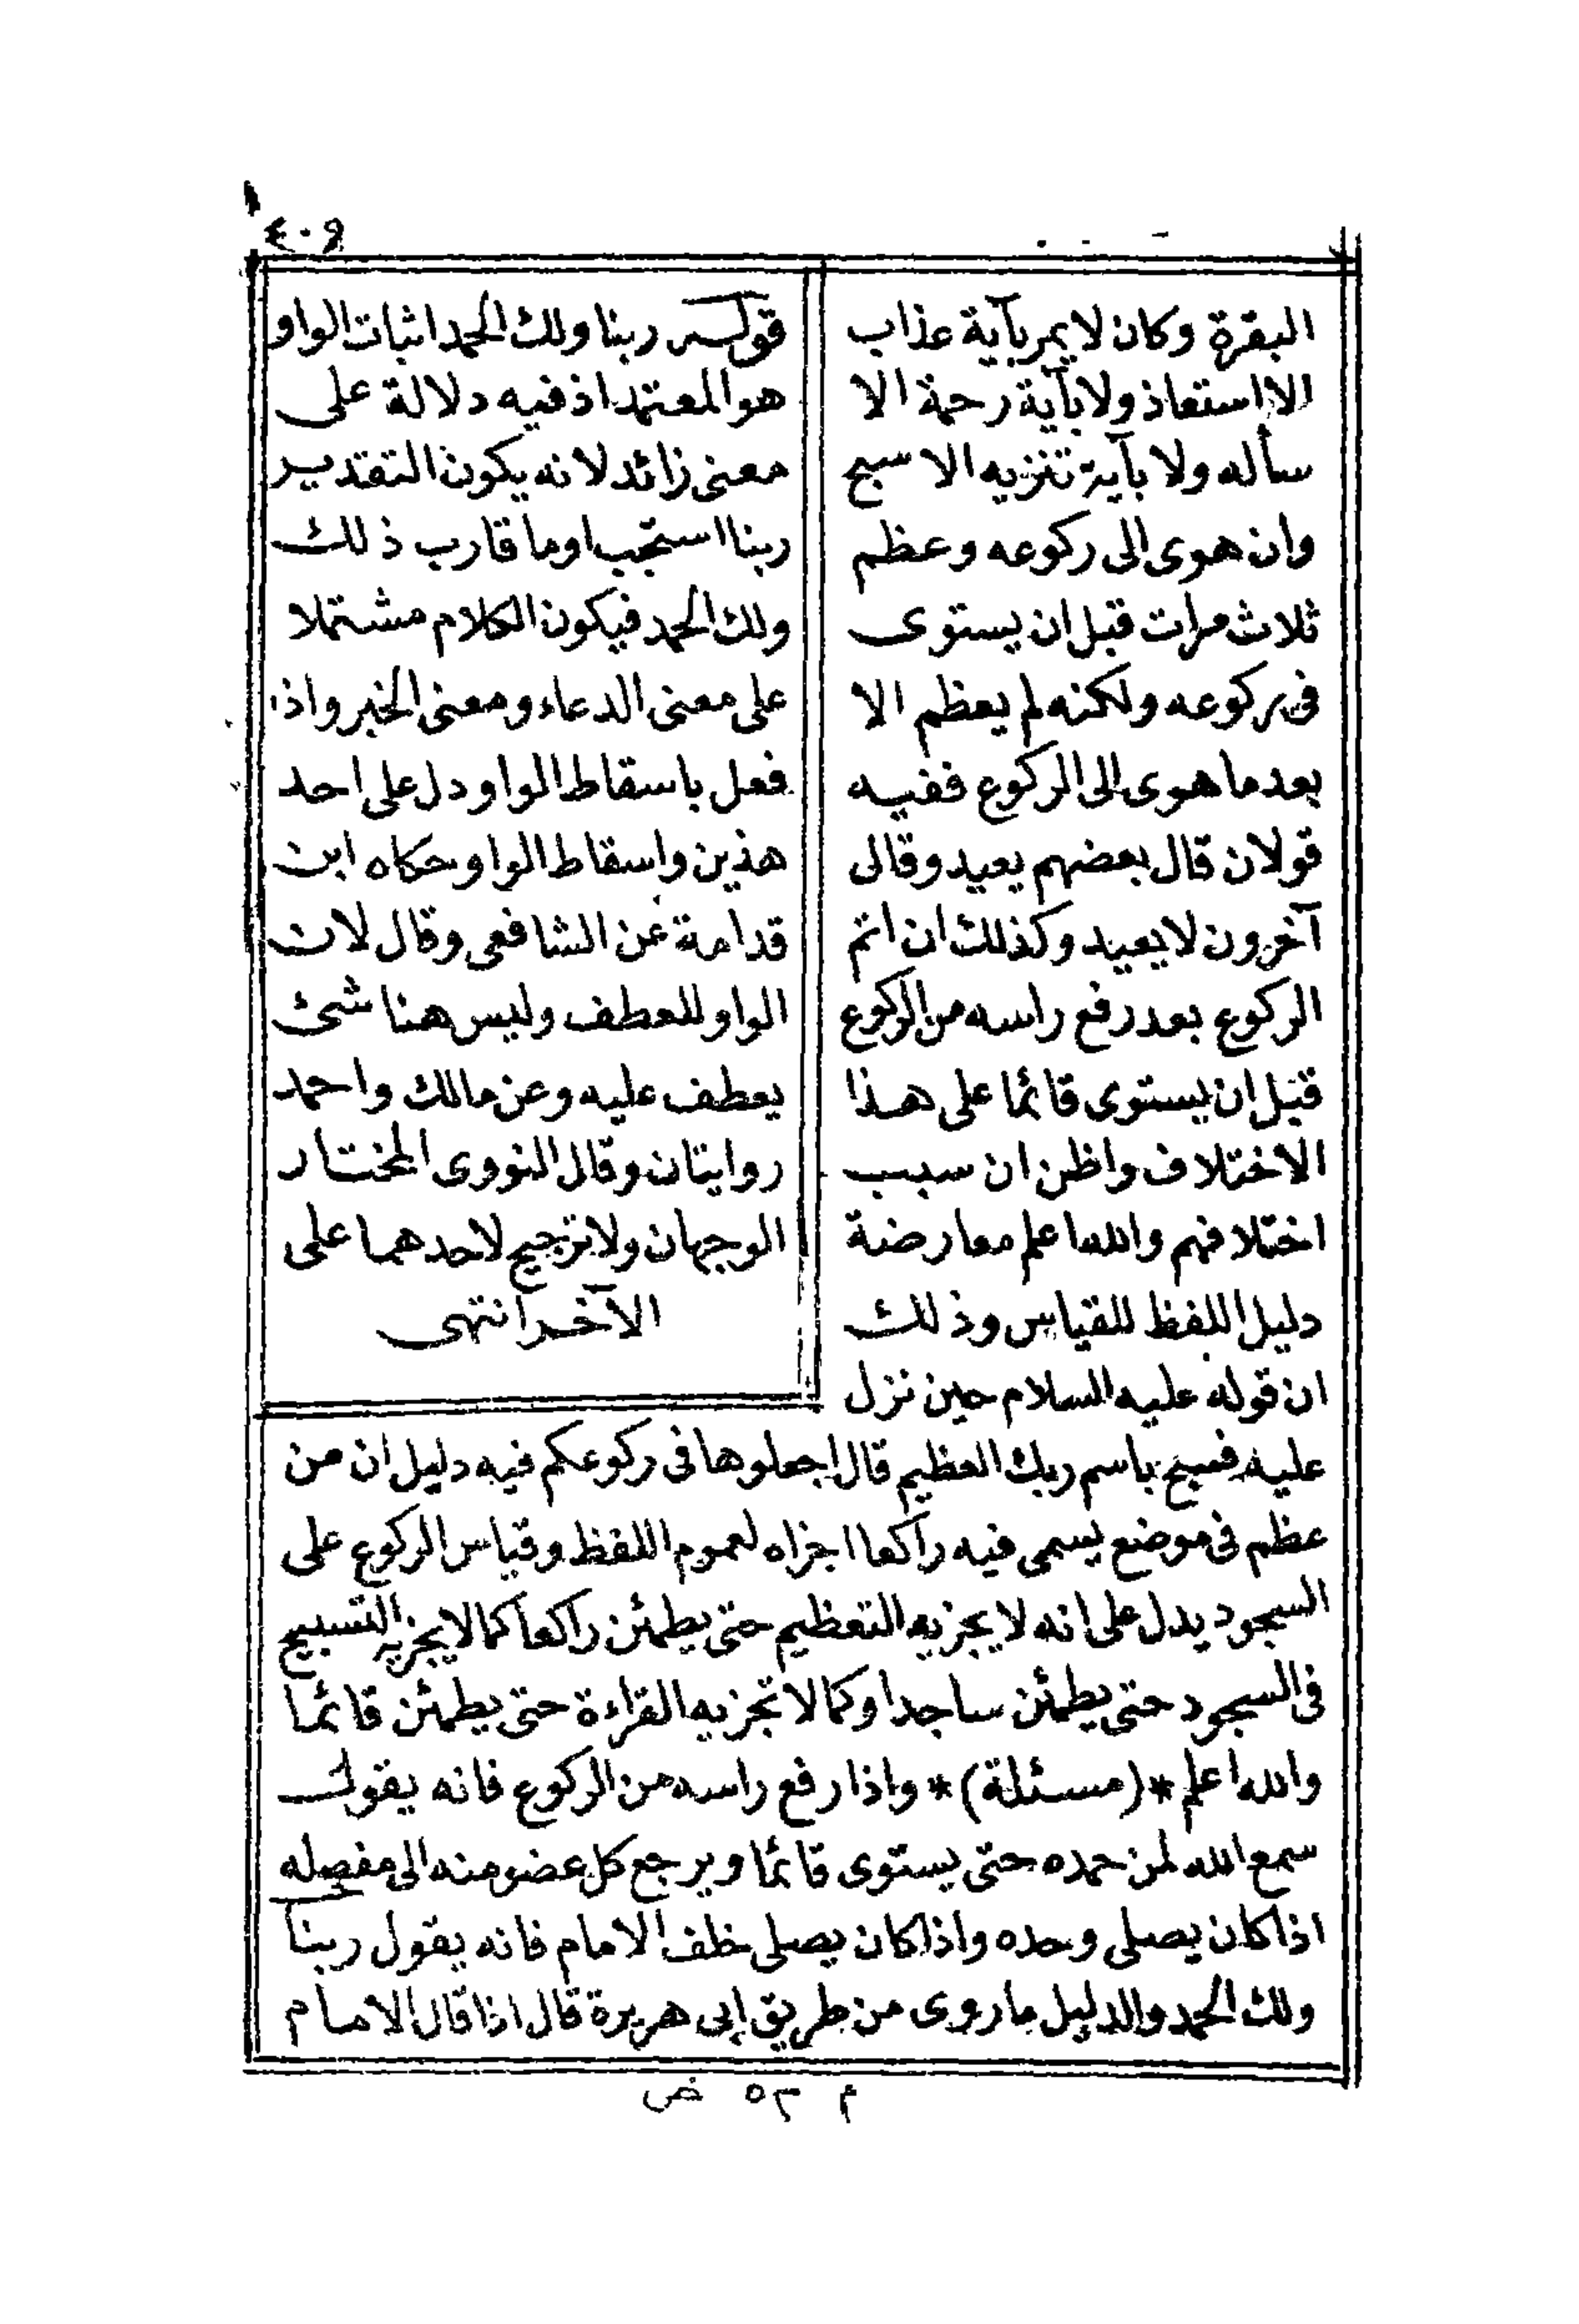 ٤٠٩
البقرة وكان لا يمر بآية عذاب
الا استعاذ ولا بآية رحمة الا
سأله ولا بآية تنزيه الا سبح
وان هوى الى ركوعه وعظم
ثلاث مرات قبل ان يستوى
فى ركوعه ولكنه لم يعظم الا
بعد ما هوى الى الركوع ففيه
قولان قال بعضهم يعيد وقال
آخرون لا يعيد وكذلك ان اتم
الركوع بعد رفع راسه من الركوع
قبل ان يستوى قائما على هذا
الاختلاف واظن ان سبب
اختلافهم والله اعلم معارضة
دليل اللفظ للقياس وذلك
ان قوله عليه السلام حين نزل
قوله ربنا ولك الحمد اثبات الواو
هو المعتمد اذ فيه دلالة على
معنى زائد لانه يكون التقدير
ربنا استجب او ما قارب ذلك
ولك الحمد فيكون الكلام مشتملا
على معنى الدعاء ومعنى الخبر واذا
فعل باسقاط الواو دل على احد
هذين واسقاط الواو حكاه ابن
قدامة عن الشافعى وقال لان
الواو للعطف وليس هنا شئ
يعطف عليه وعن مالك واحمد
روايتان وقال النووى المختار
الوجهان ولا ترجيح لاحدهما على
الآخر انتهى
عليه فسبح باسم ربك العظيم قال اجعلوها فى ركوعكم فيه دليل ان من
عظم فى موضع يسمى فيه راكعا اجزاه لعموم اللفظ وقياس الركوع على
السجود يدل على انه لا يجزيه التعظيم حتى يطمئن راكعا كما لا يجزيه التسبيح
فى السجود حتى يطمئن ساجدا وكما لا تجزيه القراءة حتى يطمئن قائما
والله اعلم *(مسئلة)* واذا رفع راسه من الركوع فانه يقول
سمع الله لمن حمده حتى يستوى قائما ويرجع كل عضو منه الى مفصله
اذا كان يصلى وحده واذا كان يصلى خلف الامام فانه يقول ربنا
ولك الحمد والدليل ما روى من طريق ابى هريرة قال اذا قال الامام
م ٥٢ ض